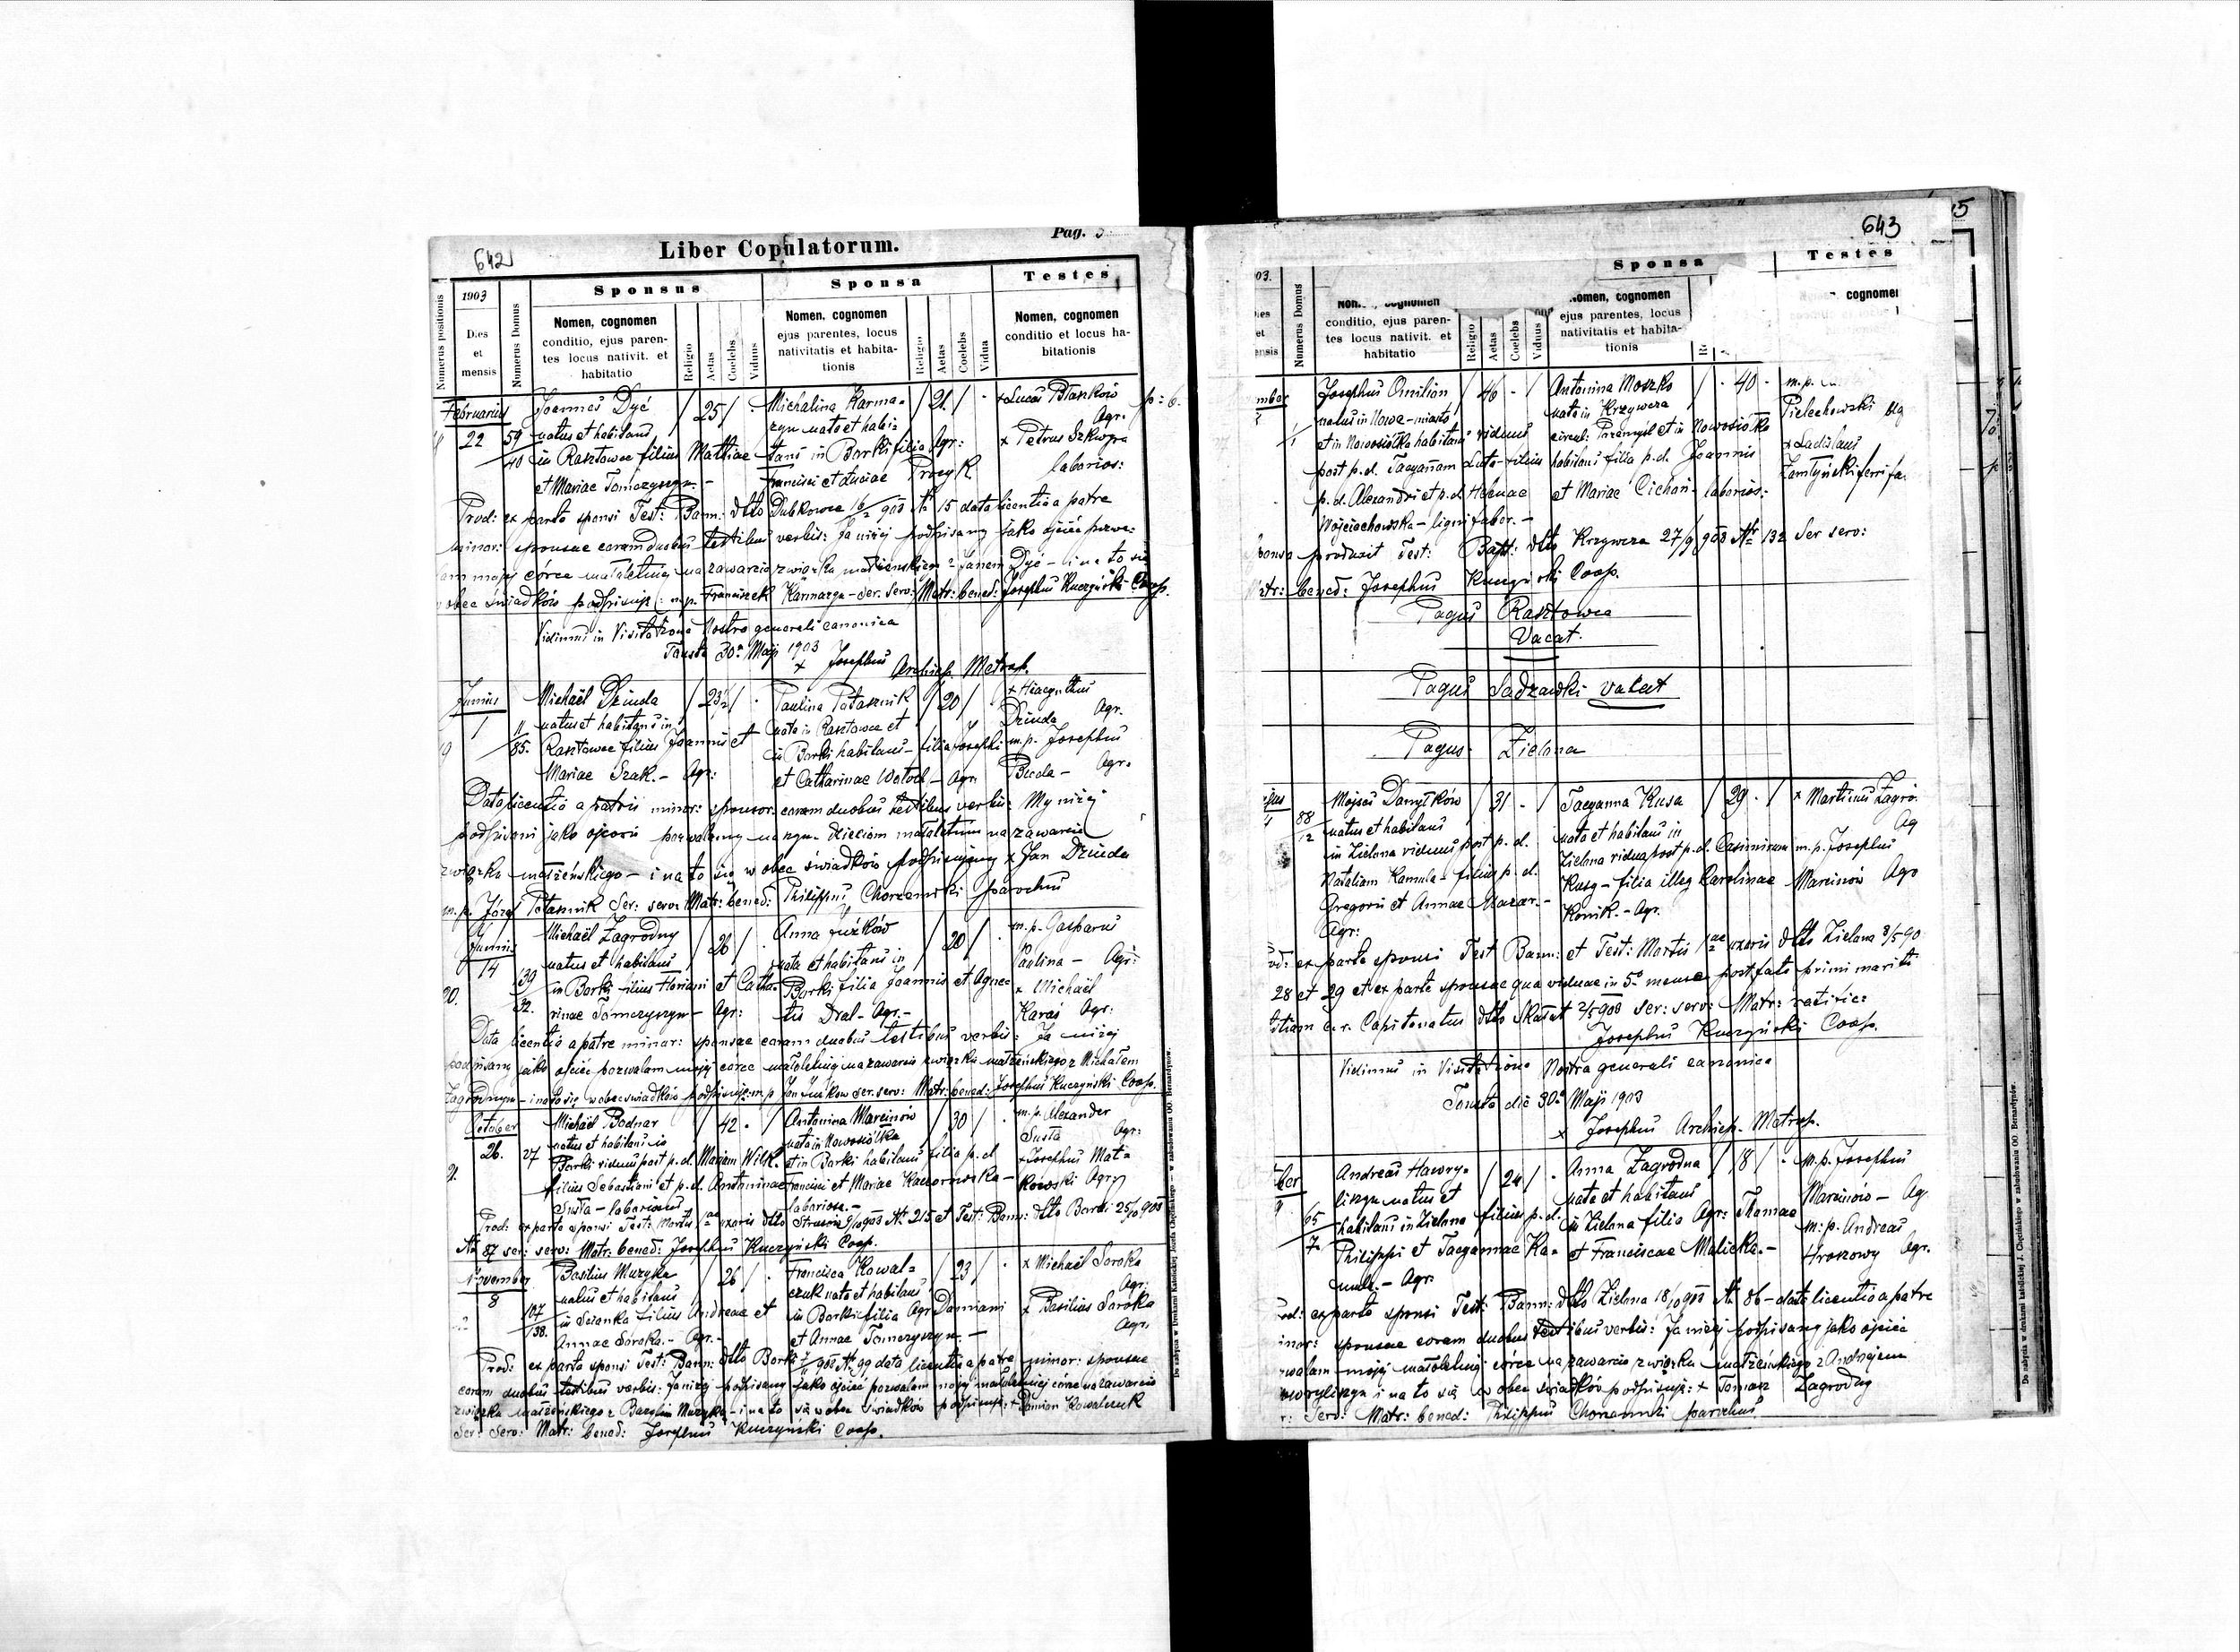 642
Liber Copulatorum.
Pag.
1903
Sponsus
Sponsa
Testes
Numerus positionis
Dies et mensis
Numerus Domus
Nomen, cognomen
conditio, ejus paren-
tes locus nativit. et
habitatio
Religio
Aetas
Coelebs
Viduus
Nomen, cognomen
ejus parentes, locus
nativitatis et habita-
tionis
Religio
Aetas
Coelebs
Vidua
Nomen, cognomen
conditio et locus ha-
bitationis
Februarius
22
59
40
Joannes Dyć
natus et habitans
in Rasztowce filius Mathiae
et Mariae Tomczyszyn -
25
Michalina Karma-
zyn nata et habi-
tans in Borki filia Agr:
Francisci et Luciae Procyk
21
+ Lucas Btaskow
Agr.
x Petrus
laborios:
Prod: ex parte sponsi Test: Bann: dtto Dubkowce 16/2 903 № 15 data licentia a patre
minor: sponsae coram duobus testibus verbis: Ja niżej podpisany jako ojciec pozwa-
am mojej córce małoletniej na zawarcie związku małżeńskiego z Janem Dyć - i na to się
obec świadków podpisuję: m.p. Franciszek Karmazyn - Ser. serv: Matr: bened: Josephus Kuczyński Coop.
Vidimus in Visitatione Nostra generali canonica
Touste 30a Maji 1903
+ Josephus Archiep. Metrop.
Junius
1
11
85.
Michaël Dziuda
natus et habitans in
Rasztowce filius Joannis et
Mariae Szak. - Agr:
23½
Paulina Patasznik
nata in Rasztowce et
in Borki habitans - filia Josephi
et Catharinae Wotoch - Agr.
20
+ Hiacynthus
Dziuda Agr.
m.p. Josephus
Buda - Agr.
Data licentia a patris minor: sponsor. coram duobus testibus verbis: My niżej
podpisani jako ojcowie pozwalamy naszym dzieciom małoletnim na zawarcie
związku małżeńskiego - i na to się w obec świadków podpisujemy x Jan Dziuda
m.p. Józef Patasznik Ser: serv: Matr: bened: Philippus Chorzemski parochus
Junius
14
20.
139
32.
Michaël Zagrodny
natus et habitans
in Borki filius Floriani et Catha-
rinae Tomczyszyn - Agr:
26
Anna Juźków
nata et habitans in
Borki filia Joannis et Agne-
tis Dral - Agr. -
20
m.p. Gasparus
Paulina - Agr:
x Michaël
Karaś Agr:
Data licentia a patre minor: sponsae coram duobus testibus verbis: Ja niżej
podpisany jako ojciec pozwalam mojej córce małoletniej na zawarcie związku małżeńskiego z Michałem
Zagrodnym - i na to się w obec świadków podpisuję: m.p Jan Juźkow ser. serv: Matr: bened: Josephus Kuczyński Coop.
October
26.
21.
27
Michaël Bodnar
natus et habitans in
Borki viduus post p.d. Mariam Wilk.
filius Sebastiani et p.d. Antoninae
Susta - laboriosus
42
Antonina Marcinow
nata in Nowosiołka
et in Borki habitans filia p.d
Francisci et Mariae Kaczorowska -
laboriosa. -
30
m.p. Alexander
Susta Agr:
+ Josephus Mat-
kowski Agr:
Prod: ex parte sponsi Test: Mortis 1ae uxoris dtto Strusow 9/10 903 № 215 et Test: Bann: dtto Borki 25/10 903
№ 87 ser: serv: Matr: bened: Josephus Kuczyński Coop.
November
8
107
138.
Basilius Muzyka
natus et habitans
in Scianka filius Andreae et
Annae Soroka. - Agr. -
26
Francisca Kowal-
czuk nata et habitans
in Borki filia Agr Damiani
et Annae Tomczyszyn. -
23
x Michaël Soroka
Agr:
x Basilius Soroka
Agr.
Prod: ex parte sponsi Test: Bann: dtto Borki 903 № 99 data licentia a patre minor: sponsae
coram duobus testibus verbis: Ja niżej podpisany jako ojciec pozwalam mojej małoletniej córce na zawarcie
związku małżeńskiego z Bazylim Muzyka - i na to się w obec świadków podpisuję: + Damian Kowalczuk
Ser: Serv: Matr: bened: Josephus Kuczyński Coop.
Do nabycia w Drukarni Katolickiej Józefa Chęcińskiego — w zabudowaniu OO. Bernardynów.
643
Sponsa
Testes
Numerus Domus
conditio, ejus paren-
tes locus nativit. et
habitatio
Religio
Aetas
Coelebs
Viduus
omen, cognomen
ejus parentes, locus
nativitatis et habita-
tionis
cognomen
mber
Josephus Omilian
natus in Nowe-miasto
et in Nowosiółka habitans viduus
post p.d. Tacyannam Luto - filius
p.d. Alexandri et p.d. Helenae
Wojciechowska - ligni faber. -
46
Antonina Moszko
nata in Krzywcza
circul: Przemyśl et in Nowosiółka
habitans filia p.d. Joannis
et Mariae Cichoń - laborios:
40
m.p.
Pielechowski
x Ladislaus
Zamłyński ferri fa.
ponsa produxit Test: Bapt: dtto Krzywcza 27/9 903 Nr 132 Ser serv:
Matr: bened: Josephus Kuczyński Coop.
Pagus Rasztowce
Vacat.
Pagus Sadzawki vacat
Pagus Zielona
88
12
Mojses Danyłków
natus et habitans
in Zielona viduus post p.d.
Nataliam Kamula - filius p.d.
Gregorii et Annae Mazar. -
Agr:
31
Tacyanna Kusa
nata et habitans in
Zielona vidua post p.d. Casimirum
Kusy - filia illeg Karolinae
Konik. - Agr.
29
x Martinus Zagro.
Ag
m.p. Josephus
Marcinow Agr
od: ex parte sponsi Test Bann: et Test: Mortis 1ae uxoris dtto Zielona 3/5 90
28 et 29 et ex parte sponsae qua viduae in 5o mense post fata primi mariti
c.r. Capitanatus dtto Skałat 2/5 903 Ser: serv: Matr: ratific:
Josephus Kuczyński Coop.
Vidimus in Visitatione Nostra generali canonica
Touste die 30a Maji 1903
x Josephus Archiep. Metrop.
ber
65
7
Andreas Hawry-
liszyn natus et
habitans in Zielona filius p.d.
Philippi et Tacyannae Ka-
mula. - Agr.
24
Anna Zagrodna
nata et habitans
in Zielona filia Agr: Thomae
et Franciscae Malicka. -
18
m.p. Josephus
Marcinów - Ag.
m.p. Andreas
Hroszowy Agr.
rod: ex parte sponsi Test: Bann: dtto Zielona 18/10 903 № 86 - data licentia a patre
inor: sponsae coram duobus testibus verbis: Ja niżej podpisany jako ojciec
zwalam mojej małoletniej córce na zawarcie związku małżeńskiego z Andrejem
awryliszyn i na to się w obec świadków podpisuję: + Tomasz Zagrodny
r: Serv: Matr: bened: Philippus Chorzemski parochus.
Do nabycia w drukarni katolickiej J. Chęcińskiego w zabudowaniu OO. Bernardynów.